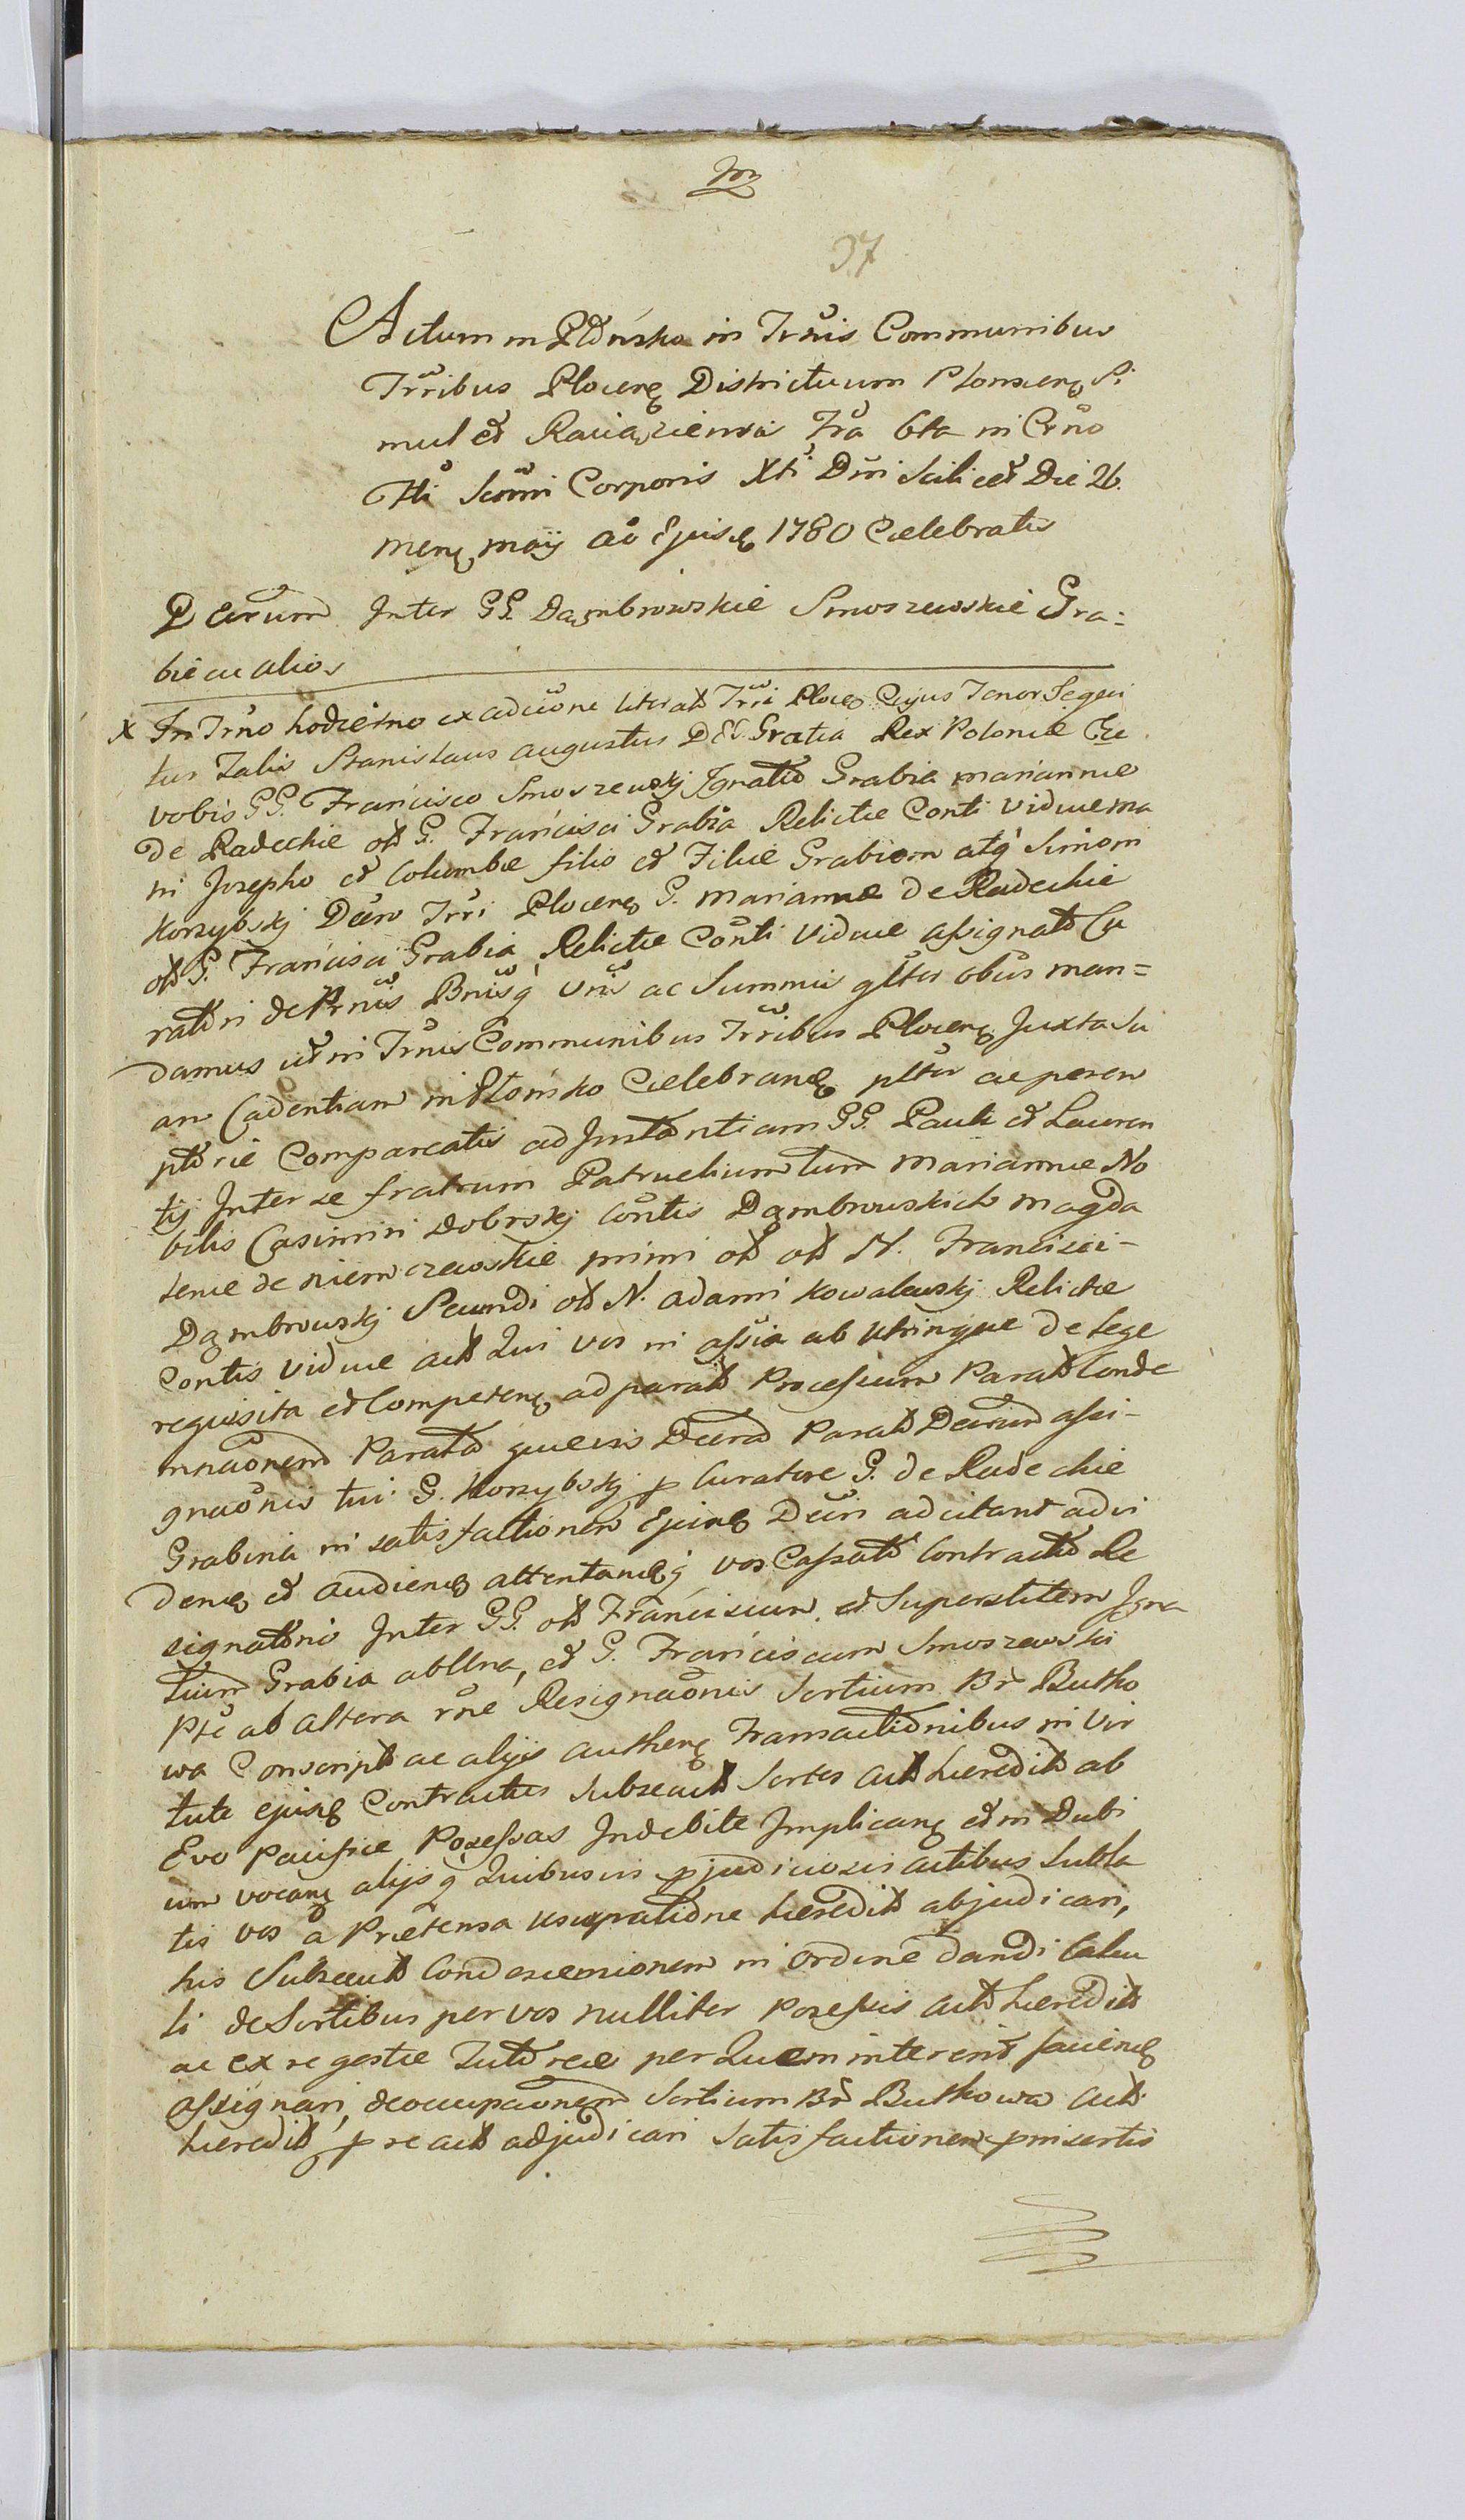 m
37
Actum in Płońsko in Trnis Communibus
Trribus Plocens Districtuum Plonscens Si
mul et Raciąziensis Fra 6ta in Crno
Fti Scmi Corporis Xti Dni Scilicet Die 26.
mens maij aõ Ejusd 1780 Celebratis
Decretum Inter GG. Dąmbrowskie Smoszewskie Gra-
bie ac alios
X In Trno hodierno ex adcitaõne literali Trri Plocen Cujus Tenor Sequi
tur Talis Stanislaus augustus Dei Gratia Rex Poloniæ Etc
vobis GG. Francisco Smoszewskj Ignatio Grabia mariannæ
de Radeckie olt G. Francisci Grabia Relictæ Conti viduæ ma
tri Josepho et Columbæ filio et Filiæ Grabiom atq Simoni
Korzybskj Decro Trri Plocens G. Mariannæ de Radeckie
olt G. Francisci Grabia Relictæ Conti Viduæ assignato Cu
ratori de Prnis Bnisq vris ac Summis gltr obus man=
damus ut in Trnis Communibus Trribus Plocens Juxta Su
am Cadentiam in Płońsko Celebrand pltr ac perem
ptorie Compareatis ad Instantiam GG. Pauli et Lauren
tij Inter se fratrum Patruelium tum Mariannæ No
bilis Casimiri Dobrskj Contis Dąmbrowskich Magda
lenæ de niemczewskie primi olt olt N. Francisci-
Dąmbrowskj Secundi olt N. adami Kowalewskj Relictæ
Contis viduæ act Qui vos in assia ab utrinque de lege
requisita et Competens ad parat Processum Parat Conde
mnaõnem Parata quævis Decreta Parat Decretum assi-
gnaõnis tui G. Korzybskj p Curatore G. de Radeckie
Grabina in satisfactionem Ejusd Decri adcitant ad vi
dend et audiend attentandq vos Cassato Contractu Re
signatorio Inter GG. olt Franciscum et Superstitem Igna
tium Grabia ab Una, et G. Franciscum Smoszewski
Pte ab altera rõne Resignaõnis Sortium Br Butko
wa Conscript ac alijs authens Transactionibus in vir
tute ejusd Contractus Subsecut Sortes act hæredit ab
Evo pacifice Possessas Indebite Implicans et in Dubi
um vocans alijsq Quibusvis pjudiciosis actibus Subla
tis vos a Prætensa usurpatione hæredit abjudicari,
his Subsecut Condescensionem in ordine dandi Calcu
li de Sortibus per vos nulliter possessis act hæredit
ac ex re gestæ Tutoreæ per Quem intererit faciend
assignari, deoccupaõnem Sortium Br Butkowa act
hæredit p re act adjudicari Satisfactionem pmisertis